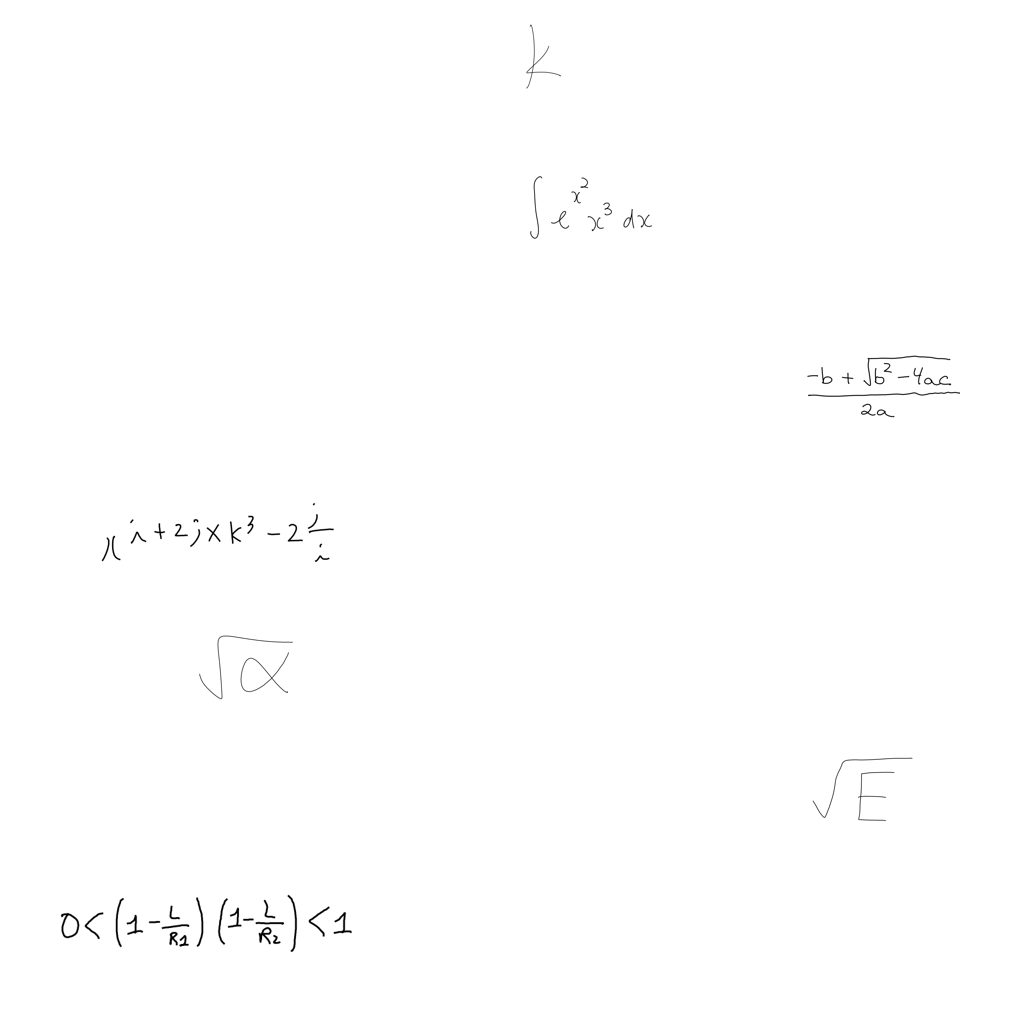 k
\int e^{x^2} x^3 dx
\frac{-b + \sqrt{b^2 - 4ac}}{2a}
x^{i + 2j} \times k^3 - 2\frac{j}{i}
\sqrt{\alpha}
\sqrt{E}
0 < \left(1 - \frac{L}{R_1}\right) \left(1 - \frac{L}{R_2}\right) < 1